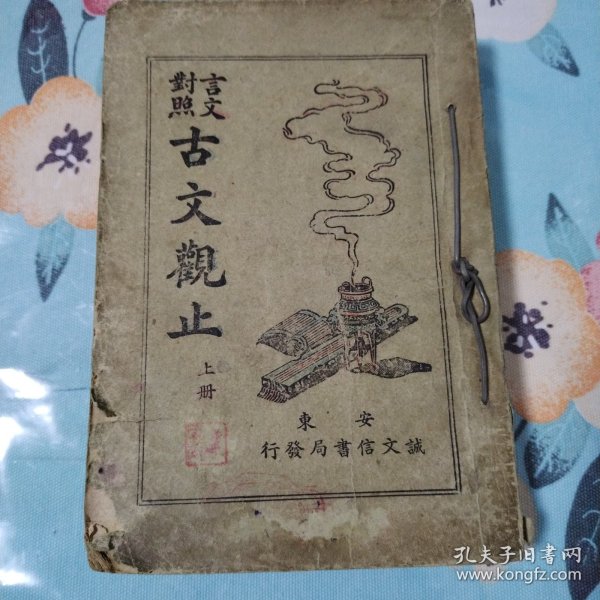 言文
對照
古文觀止
上册
安東
誠文信書局發行
孔夫子旧书网
www.kongfz.com